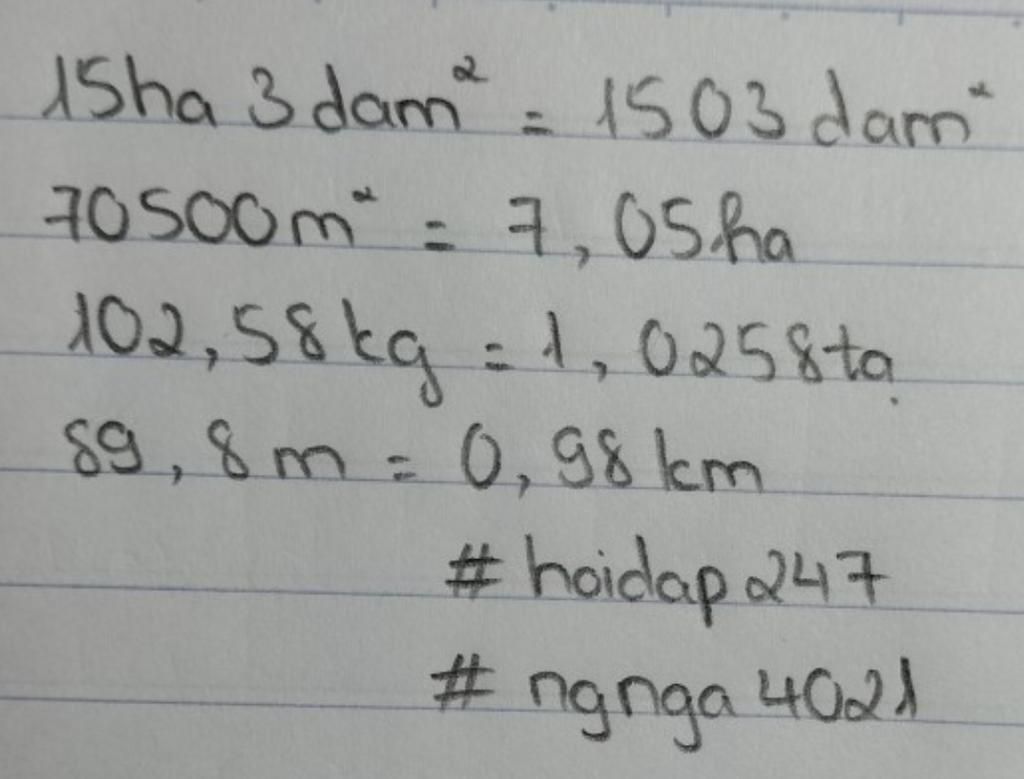 15ha 3 dam² = 1503 dam²
70500m² = 7,05ha
102,58kg = 1,0258tạ
89,8m = 0,98km
# hoidap247
# ngnga4021